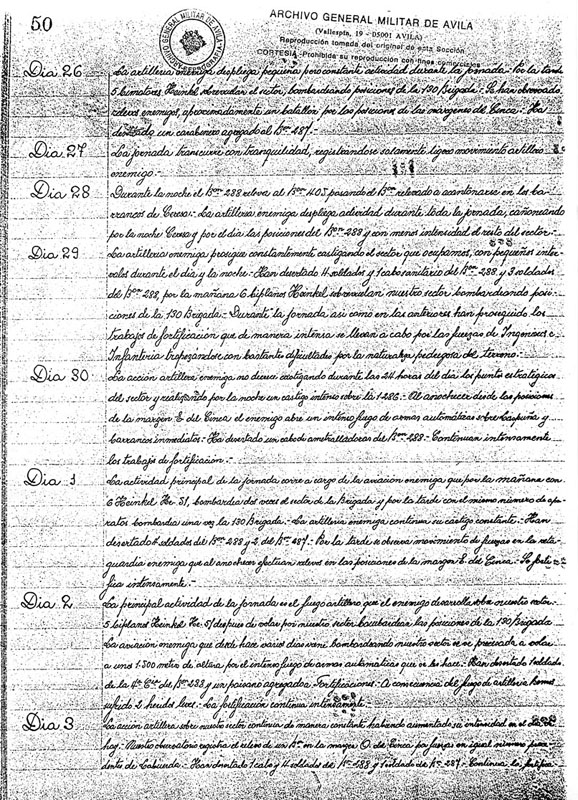 50
ARCHIVO GENERAL MILITAR DE AVILA
(Vallespín, 19 - 05001 AVILA)
Reproducción tomada del original de esta Sección
CORTESIA - Prohibida su reproducción con fines comerciales
ARCHIVO GENERAL MILITAR DE AVILA
Dia 26 La artilleria enemiga despliega pequeña pero constante actividad durante la jornada.- Por la tarde
5 bimotores Heinkel sobrevuelan el sector, bombardeando posiciones de la 130 Brigada.- Se han observado
relevos enemigos, aproximadamente un batallon por las posiciones de las margenes del Cinca.- Ha
desertado un carabinero agregado al Bon 287.-
Dia 27 La jornada transcurre con tranquilidad, registrandose solamente ligero movimiento artillero
enemigo.-
Dia 28 Durante la noche el Bon 288 releva al Bon 405 pasando el Bon relevado a acantonarse en los ba-
rrancos de Ceresa.- La artilleria enemiga despliega actividad durante toda la jornada, cañoneando
por la noche Ceresa y por el dia las posiciones del Bon 288 y con menos intensidad el resto del sector.-
Dia 29 La artilleria enemiga prosigue constantemente castigando el sector que ocupamos, con pequeños inter-
valos durante el dia y la noche.- Han desertado 4 soldados y 1 cabo sanitario del Bon 288 y 3 soldados
del Bon 288, por la mañana 6 biplanos Heinkel sobrevuelan nuestro sector bombardeando posi-
ciones de la 130 Brigada.- Durante la jornada asi como en las anteriores han proseguido los
trabajos de fortificación que de manera intensa se llevan a cabo por las fuerzas de Ingenieros e
Infanteria tropezandose con bastantes dificultades por la naturaleza pedregosa del terreno.-
Dia 30 La acción artillera enemiga no decrece castigando durante las 24 horas del dia los puntos estratégicos
del sector y realizando por la noche un castigo intenso sobre la 1.286.- Al anochecer desde las posiciones
de la margen E del Cinca el enemigo abre un intenso fuego de armas automáticas sobre Laspuña y
barrancos inmediatos.- Ha desertado un cabo de ametralladoras del Bon 288.- Continuan intensamente
los trabajos de fortificación.-
Dia 1 La actividad principal de la jornada corre a cargo de la aviacion enemiga que por la mañana con
6 Heinkel He. 51, bombardea dos veces el sector de la Brigada y por la tarde con el mismo número de apa-
ratos bombardea una vez la 130 Brigada.- La artilleria enemiga continua su castigo constante.- Han
desertado 4 soldados del Bon 288 y 2 del Bon 287.- Por la tarde se observa movimiento de fuerzas en la reta-
guardia enemiga que al anochecer efectúan relevos en las posiciones de la margen E del Cinca.- Se forti-
fica intensamente.-
Dia 2 La principal actividad de la jornada es el fuego artillero que el enemigo desarrolla sobre nuestro sector.-
5 biplanos Heinkel He. 51 despues de volar por nuestro sector bombardean las posiciones de la 130 Brigada
La aviacion enemiga que desde hace varios dias viene bombardeando nuestro sector se ve precisada a volar
a unos 1.500 metros de altura por el intenso fuego de armas automáticas que se les hace.- Han desertado 1 soldado
de la 4ª Cia del Bon 288 y un paisano agregado. Fortificaciones.- A consecuencia del fuego de artilleria hemos
sufrido 2 heridos leves.- La fortificación continua intensamente.-
Dia 3 La acción artillera sobre nuestro sector continúa de manera constante habiendo aumentado su intensidad en el dia de
hoy.- Nuestro observatorio registra el relevo de un Bon en la margen O del Cinca por fuerzas en igual número proce-
dente de Labuerda.- Han desertado 1 cabo y 4 soldados del Bon 288 y 1 soldado del Bon 287.- Continua la fortifica-